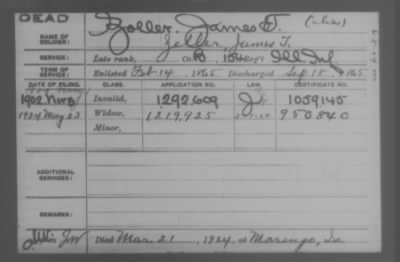 DEAD
Zoller, James T. (alias)
NAME OF SOLDIER: Zeller, James T.
SERVICE: Late rank, Co. B, 154 Reg't Ill. Inf.
TERM OF SERVICE: Enlisted Feb 14, 1865 Discharged Sep. 18, 1865
DATE OF FILING. CLASS. APPLICATION NO. LAW. CERTIFICATE NO.
1902 Nov Invalid, 1292609 1059145
1924 May 23 Widow, 1219925 950840
Minor,
ADDITIONAL SERVICES:
REMARKS:
Died Mar. 21, 1924, at Marengo, Ia